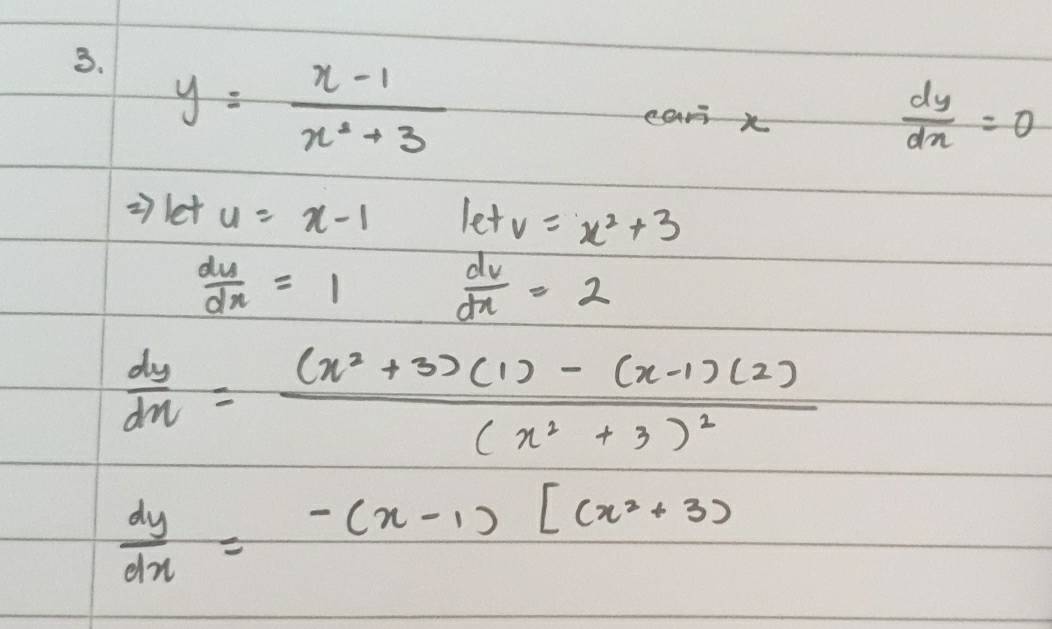 3. y = (x - 1) / (x² + 3) cari x dy/dx = 0
⇒ let u = x - 1 let v = x² + 3
du/dx = 1 dv/dx = 2
dy/dx = ((x² + 3)(1) - (x-1)(2)) / (x² + 3)²
dy/dx = -(x - 1) [(x² + 3)